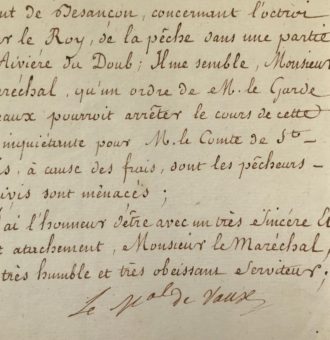 nt de Besançon, concernant l'octroi
ur le Roy, de la pêche dans une partie
Riviére du Doub; Il me semble, Monsieur
aréchal, qu'un ordre de M. le Garde
eaux pourroit arrêter le cours de cette
inquiétante pour M. le Comte de St.-
is, à cause des frais, dont les pêcheurs-
uivis sont ménacés;
'ai l'honneur d'être avec un très Sincére Et
t atachement, Monsieur le Maréchal,
très humble et très obeissant Serviteur;
Le Mal de Vaux